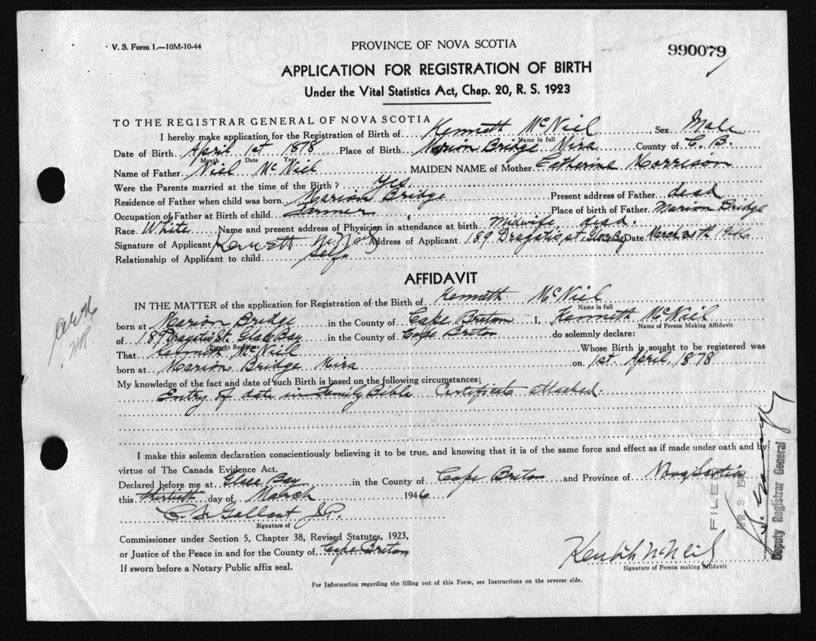 V. S. Form 1.—10M-10-44
PROVINCE OF NOVA SCOTIA
990079
APPLICATION FOR REGISTRATION OF BIRTH
Under the Vital Statistics Act, Chap. 20, R. S. 1923
TO THE REGISTRAR GENERAL OF NOVA SCOTIA
I hereby make application for the Registration of Birth of Kenneth McNiel Sex Male
Name in full
Date of Birth April 1st 1878 Place of Birth Marion Bridge Mira County of C. B.
Month Date Year
Name of Father Niel McNiel MAIDEN NAME of Mother Catherine Morrison
Were the Parents married at the time of the Birth? Yes
Residence of Father when child was born Marion Bridge Present address of Father dead
Occupation of Father at Birth of child farmer Place of birth of Father Marion Bridge
Race White Name and present address of Physician in attendance at birth Midwife dead.
Signature of Applicant Kennett Address of Applicant 189 Date March 1946
Relationship of Applicant to child Self
AFFIDAVIT
IN THE MATTER of the application for Registration of the Birth of Kenneth McNiel
Name in full
born at Marion Bridge in the County of Cape Breton I, Kenneth McNeil
Name of Person Making Affidavit
of 189 Glace Bay in the County of Cape Breton do solemnly declare:
That Kenneth McNiel Whose Birth is sought to be registered was
born at Marion Bridge Mira on 1st April 1878
My knowledge of the fact and date of such Birth is based on the following circumstances:
Entry of date in Family Bible Certificate attached.
I make this solemn declaration conscientiously believing it to be true, and knowing that it is of the same force and effect as if made under oath and by
virtue of The Canada Evidence Act.
Declared before me at Glace Bay in the County of Cape Breton and Province of Nova Scotia
this thirtieth day of March 1946
C Gallant J.P.
Signature of
Commissioner under Section 5, Chapter 38, Revised Statutes, 1923,
or Justice of the Peace in and for the County of Cape Breton
If sworn before a Notary Public affix seal.
Kenneth McNeil
Signature of Person making Affidavit
FILED
Deputy Registrar General
For Information regarding the filling out of this Form, see Instructions on the reverse side.